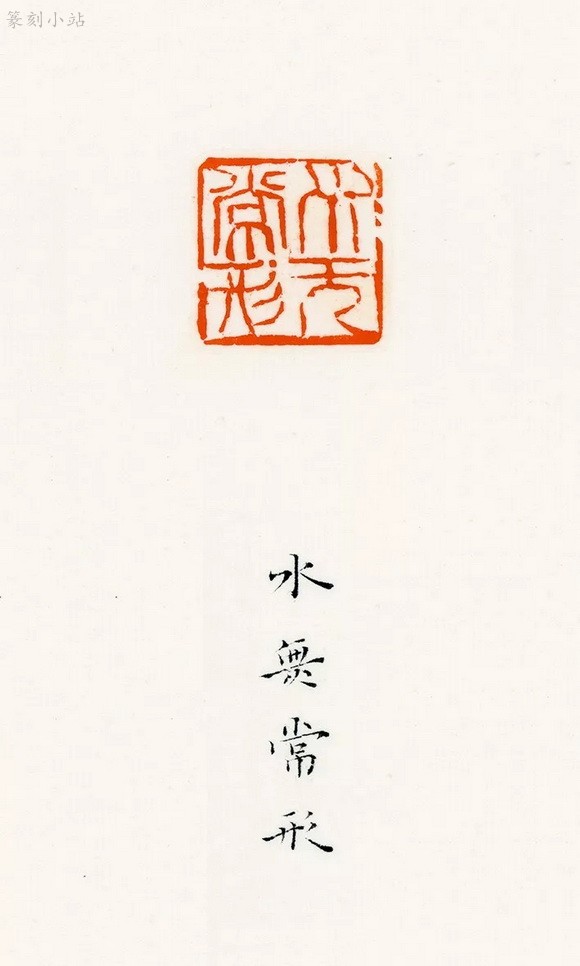 篆刻小站
水无常形
水
無
常
形